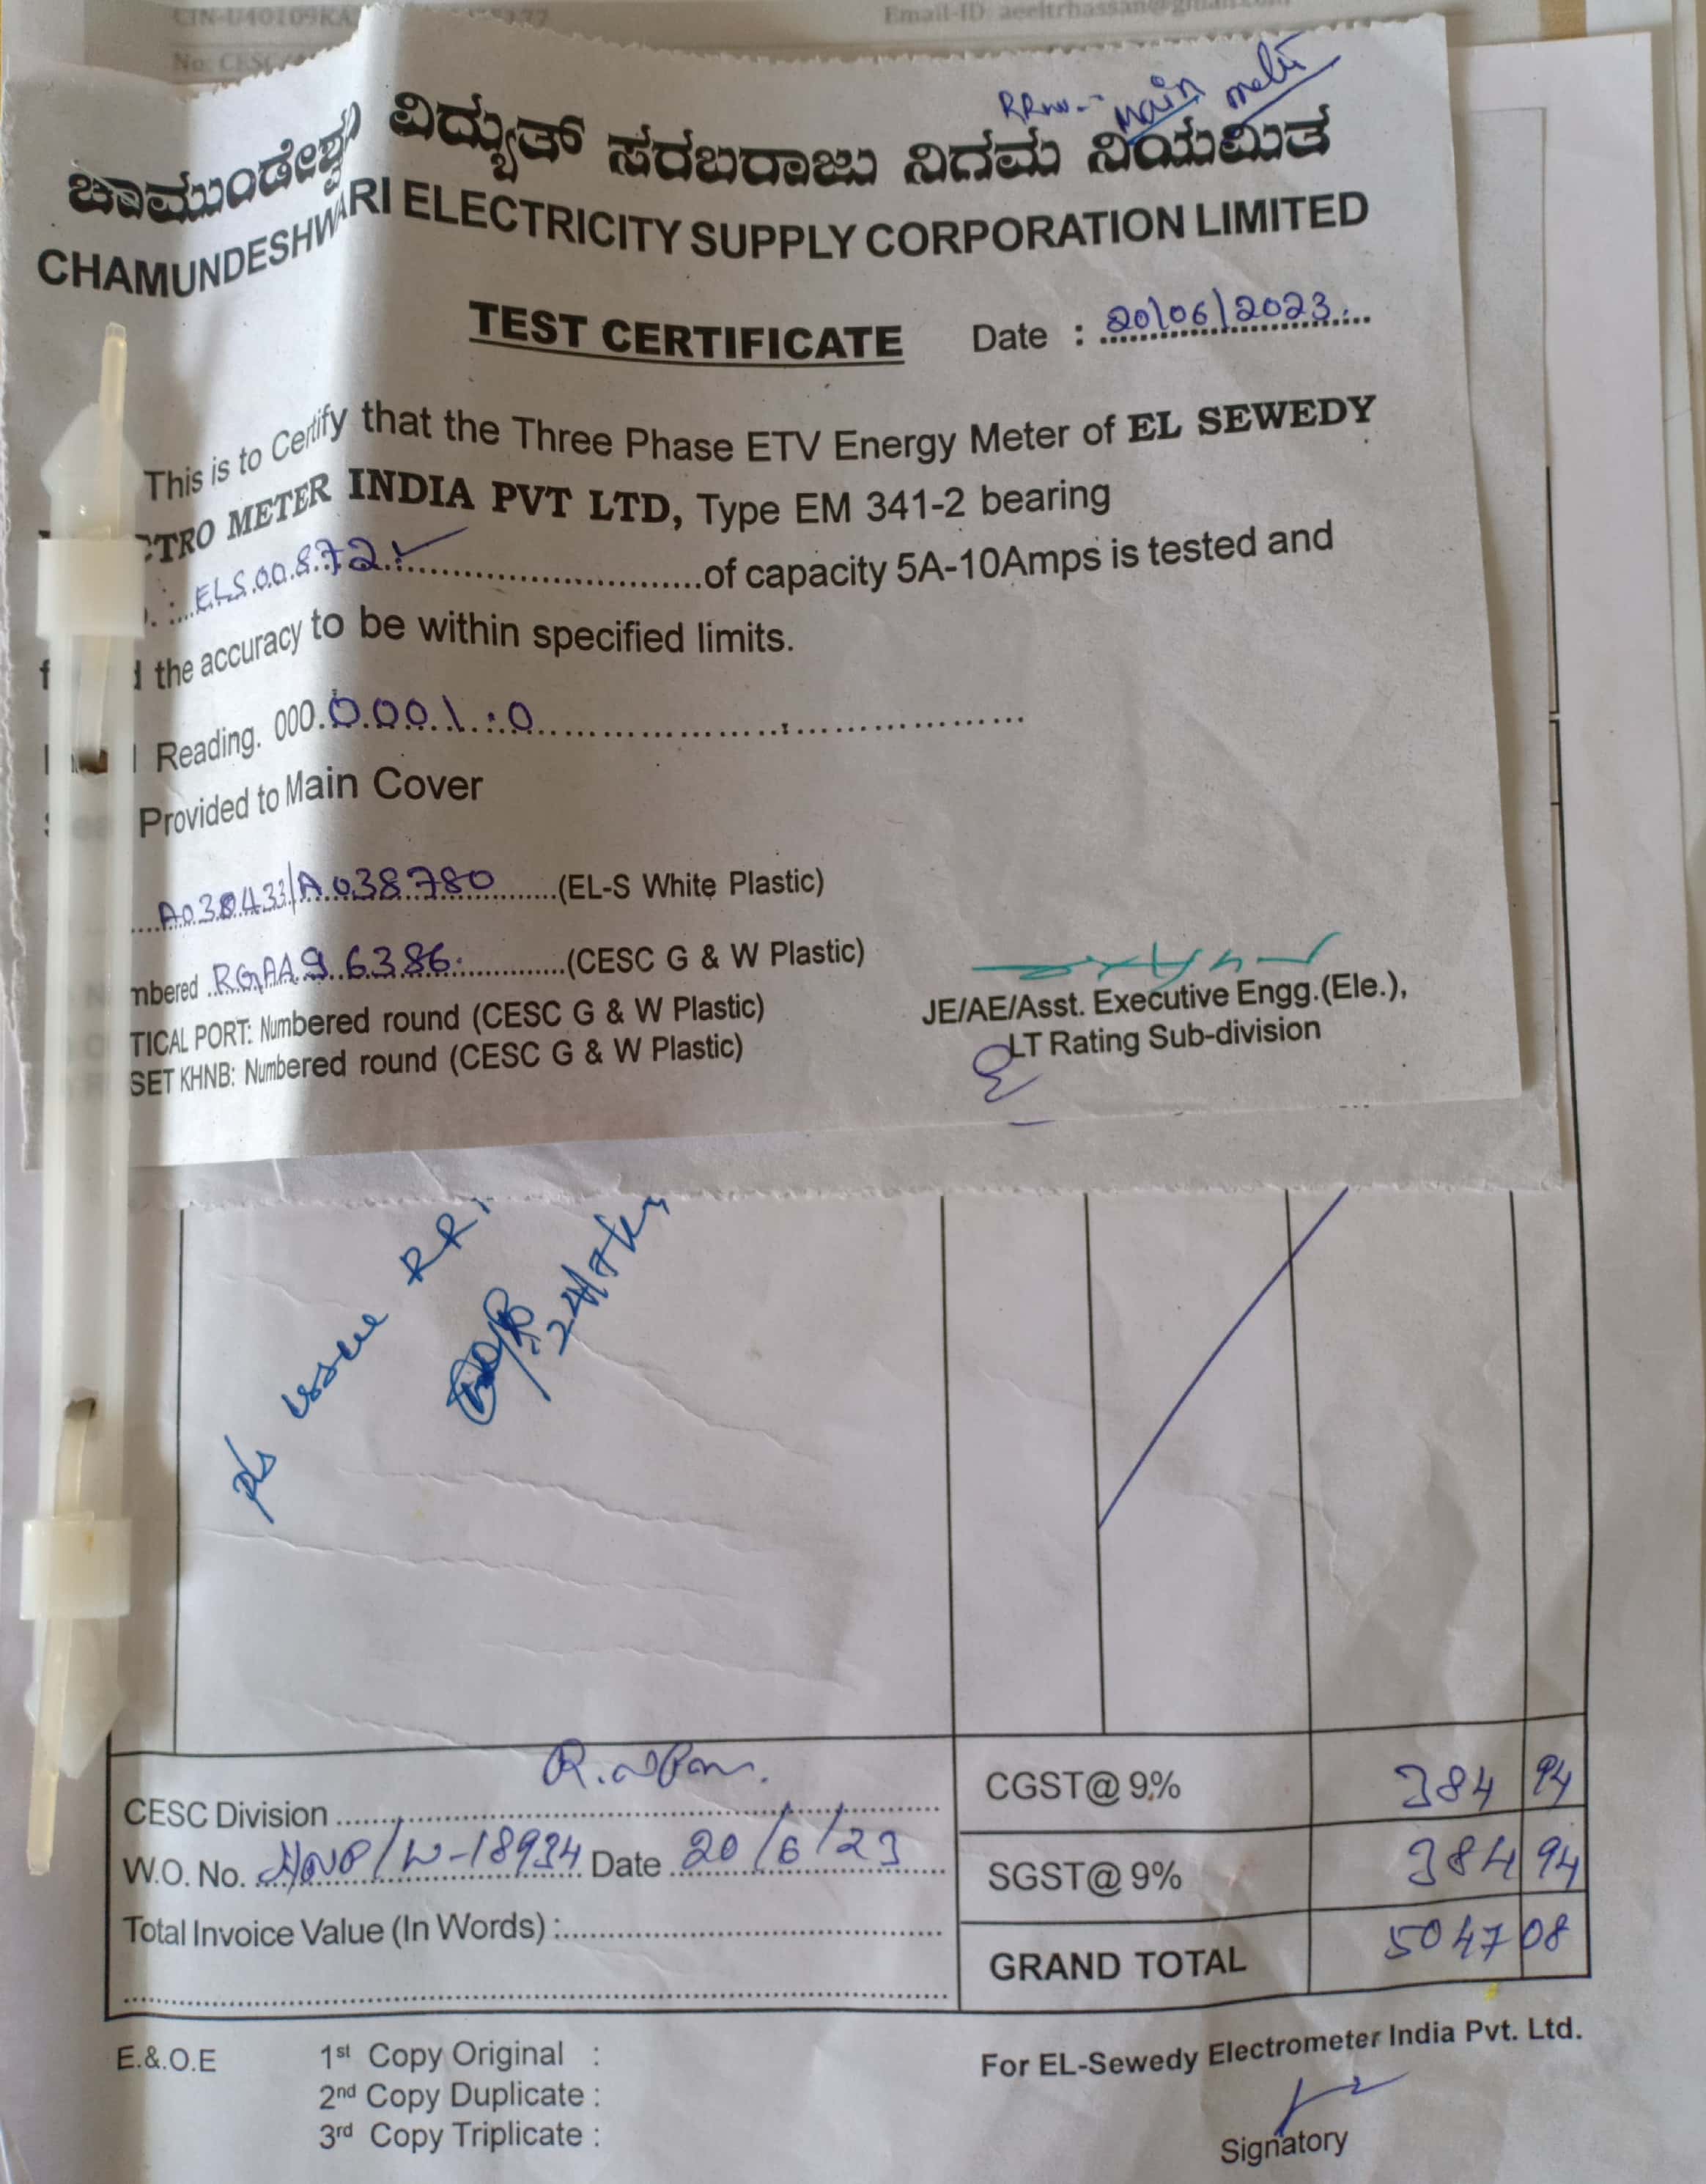 CIN-U40109KA
Email-ID: aeeltrhassan@gmail.com
No: CESC
RRno.- Main meter
ಚಾಮುಂಡೇಶ್ವರಿ ವಿದ್ಯುತ್ ಸರಬರಾಜು ನಿಗಮ ನಿಯಮಿತ
CHAMUNDESHWARI ELECTRICITY SUPPLY CORPORATION LIMITED
TEST CERTIFICATE Date : 20/06/2023
This is to Certify that the Three Phase ETV Energy Meter of EL SEWEDY
CTRO METER INDIA PVT LTD, Type EM 341-2 bearing
: ELS00872 of capacity 5A-10Amps is tested and
the accuracy to be within specified limits.
Reading. 000.0001:0
Provided to Main Cover
A030433/A038780 (EL-S White Plastic)
mbered RGAA96386 (CESC G & W Plastic)
TICAL PORT: Numbered round (CESC G & W Plastic)
SET KHNB: Numbered round (CESC G & W Plastic)
JE/AE/Asst. Executive Engg.(Ele.),
LT Rating Sub-division
issue RR
CESC Division
W.O. No. HNP/W-18934 Date 20/6/23
Total Invoice Value (In Words) :
CGST@ 9% 384 94
SGST@ 9% 384 94
GRAND TOTAL 5047 08
E.&.O.E 1st Copy Original :
2nd Copy Duplicate :
3rd Copy Triplicate :
For EL-Sewedy Electrometer India Pvt. Ltd.
Signatory